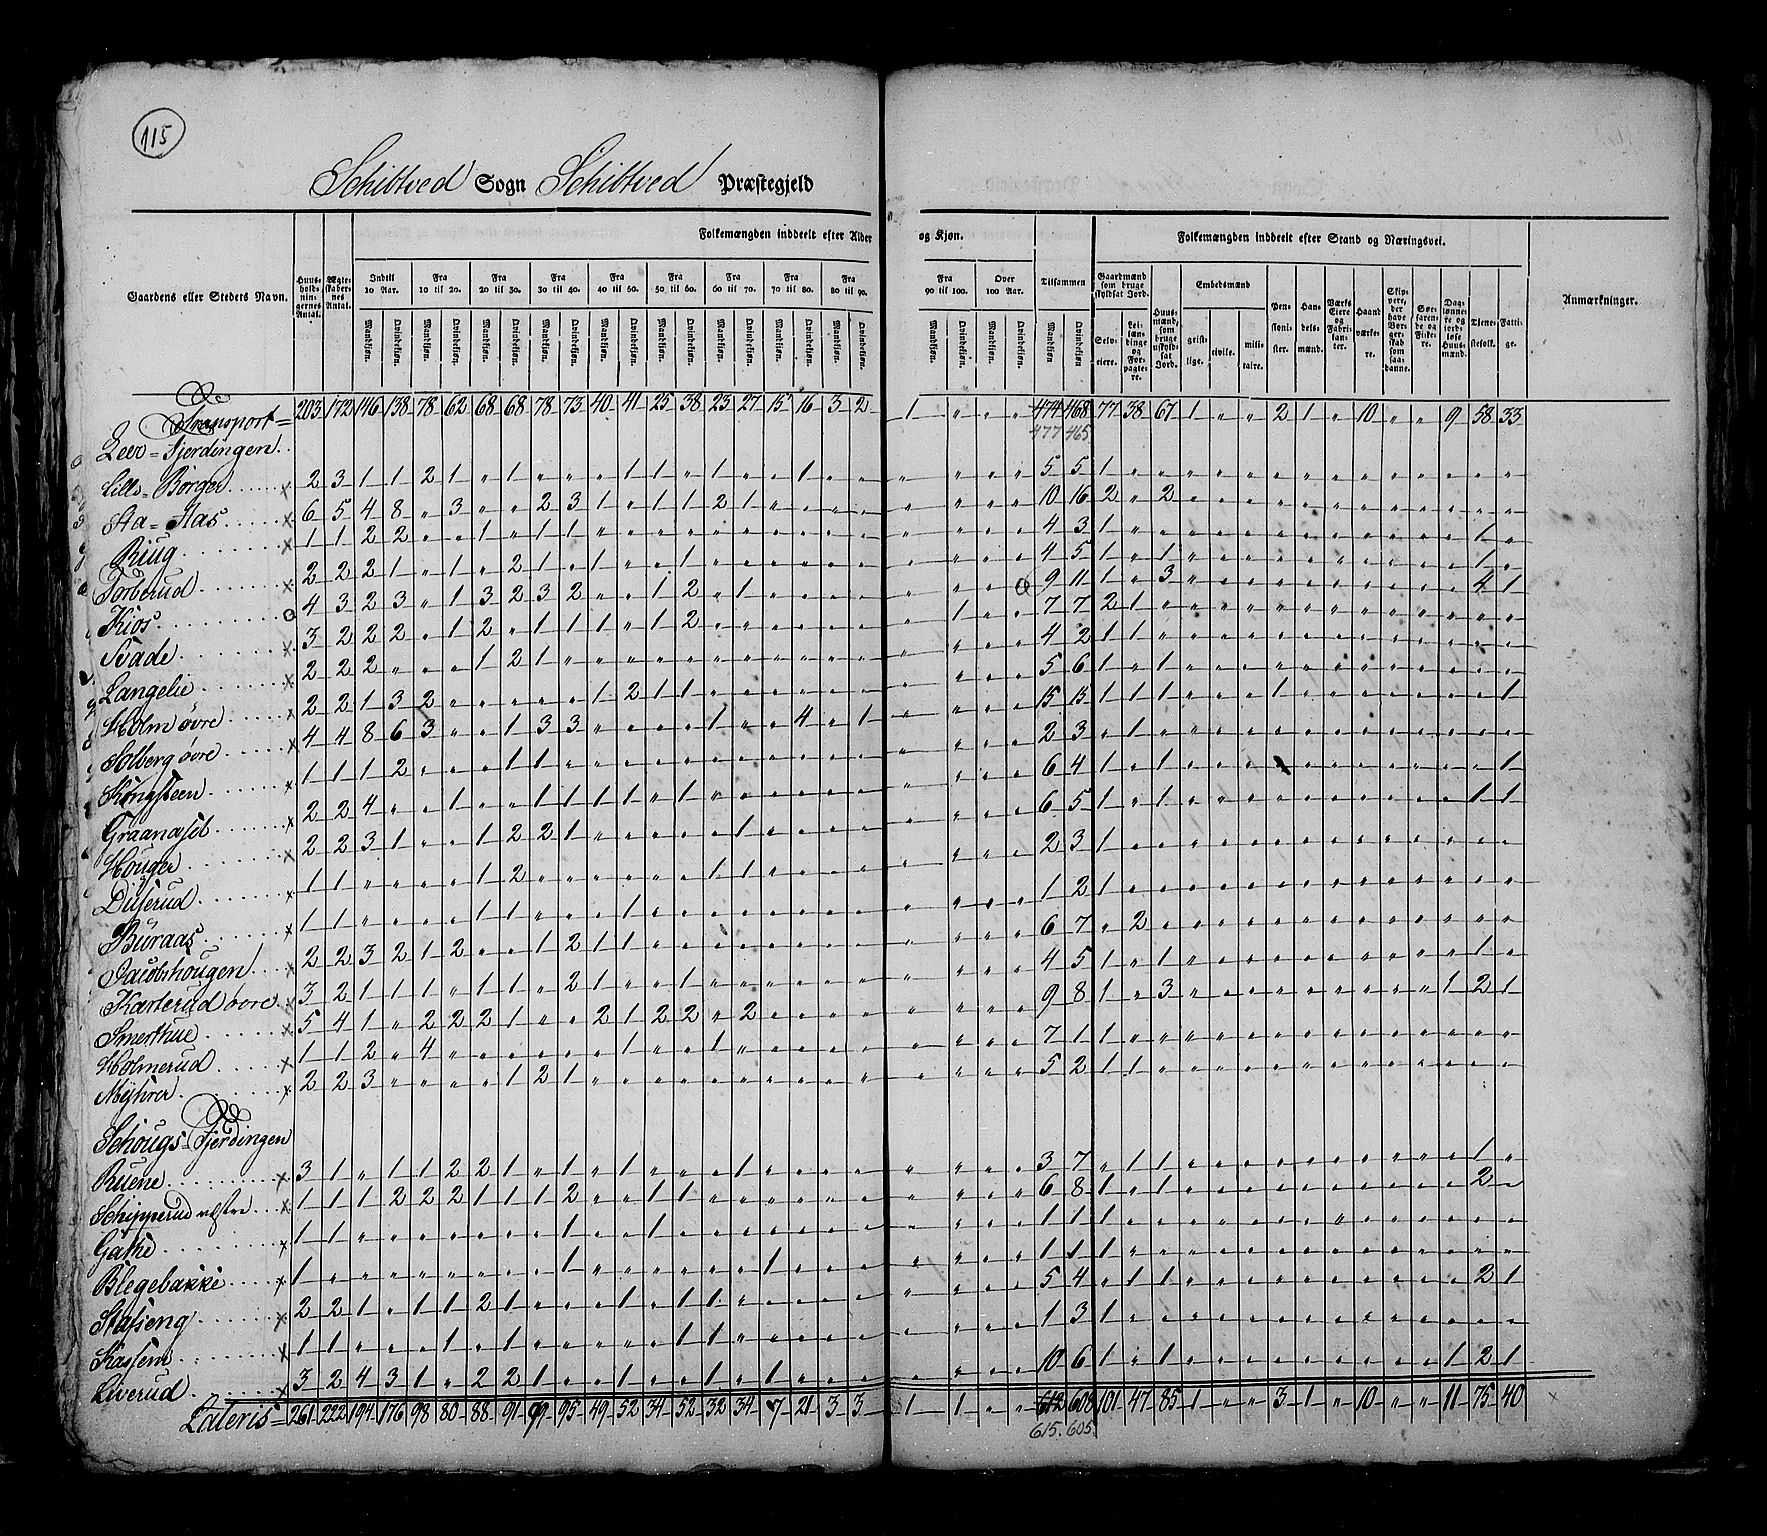 115
Schibtved Sogn Schibtved Præstegjeld
Folkemængden inddeelt efter Alder og Kjøn.
Folkemængden inddeelt efter Stand og Næringsvei.
Gaardens eller Stedets Navn.
Huusholdningernes Antal.
Ægteskabernes Antal.
Indtil 10 Aar.
Fra 10 til 20.
Fra 20 til 30.
Fra 30 til 40.
Fra 40 til 50.
Fra 50 til 60.
Fra 60 til 70.
Fra 70 til 80.
Fra 80 til 90.
Fra 90 til 100.
Over 100 Aar.
Tilsammen
Mandkjøn. Qvindekjøn.
Gaardmænd som bruge skyldsat Jord.
Selveiere.
Leilændinge og Forpagtere.
Huusmænd, som bruge uskyldsat Jord.
Embedsmænd
geistlige. civile. militaire.
Pensionister.
Handelsmænd.
Værks Eiere og Fabrikanter.
Haandværkere.
Skippere, der have Borgerskab som saadanne.
Søfarende og Fiskere.
Daglønnere og jordløse Huusmænd.
Tjenestefolk.
Fattige.
Anmærkninger.
Transport= 203 172 146 138 78 62 68 68 78 73 40 41 25 38 23 27 15 16 3 2 1 " " " 474 468 77 38 67 1 " " 2 1 " 10 " " 9 58 33
477 465
Leer=Fjerdingen.
Lille=Borger 2 3 1 1 2 1 " 1 " " " 1 1 " 1 " " 1 " " " " " " 5 5 1
Sta=Aas 6 5 4 8 " 3 " " 2 3 1 " 1 1 2 1 " " " " " " " " 10 16 2 " 2
Riug 1 1 2 2 " " 1 " 1 1 " " " " " " " " " " " " " " 4 3 1 1
Torberud 2 2 2 1 " 1 " 2 1 " 1 " " 1 " " " " " " " " " " 4 5 1 " 1 1
Kios 4 3 2 3 " 1 3 2 3 2 " " 1 2 " 1 " " " " " " " " 9 11 1 " 3 4 1
Bade 3 2 2 2 " 1 2 " 1 1 1 " 1 2 " " " " " " 1 " " " 7 7 2 1
Langelie 2 2 2 " " " 1 2 1 4 2 1 1
Holm øvre 2 2 1 3 2 " " " " " 1 2 1 1 5 6 1 " 1
Solberg øvre 4 4 8 6 3 " " 1 3 3 " " " " 1 " " 4 " 1 15 15 1 1 1 1 1
Kongsteen 1 1 1 2 " " " 1 1 2 3 " 1
Graanasel 2 2 4 " " 1 " " 1 1 1 1 " 1 6 4 1 " 1 1
Houger 2 2 3 1 " " 1 2 2 1 " " " " " 1 6 5 1 " 1 1 1
Diserud 1 1 " " " " 1 2 " " " " " " 1 1 2 3 1
Buraas 1 1 " " " " 1 1 " " " 1 1 2 1
Jacobshougen 2 2 3 2 1 2 " " 1 2 1 1 6 7 " 2
Karterud øvre 3 2 1 1 1 " 1 1 " 2 1 " " 1 4 5 1 " 1 1
Smerthue 5 4 1 " 2 2 2 1 " " 2 1 2 2 " 2 9 8 1 " 3 1 2 1
Holmerud 1 1 2 " 4 " " " " " " 1 " " 1 7 1 1
Myhrer 2 2 3 " " " " 1 2 1 5 2 1 1
Schougs=Fjerdingen
Ruene 3 1 " 1 1 2 2 1 " 1 " 1 " " " 1 3 7 " 1 1 1
Schipperud vestre 1 1 1 2 2 2 1 1 1 2 " " 1 1 6 8 1 " 1 2
Gathe 1 1 " " " " " " " 1 " " 1 1 1 1
Blegebakke 1 " " " " " " " " 1 " " " " " " 1 1 1 1
Statseng 2 2 1 " 1 1 2 1 " " 1 " 1 1 5 4 " 1 1 2 1
Kassem 1 1 " " " 1 " 1 " " " " " 1 1 1 3 1
Liverud 3 2 4 3 1 " 2 2 1 " " 1 " 1 " 1 10 6 1 " 1 1 2 1
Lateris= 261 222 194 176 98 80 88 91 99 95 49 52 34 52 32 34 7 21 3 3 1 1 " " 612 608 101 47 85 1 " " 3 1 " 10 " " 11 75 40
615. 605.